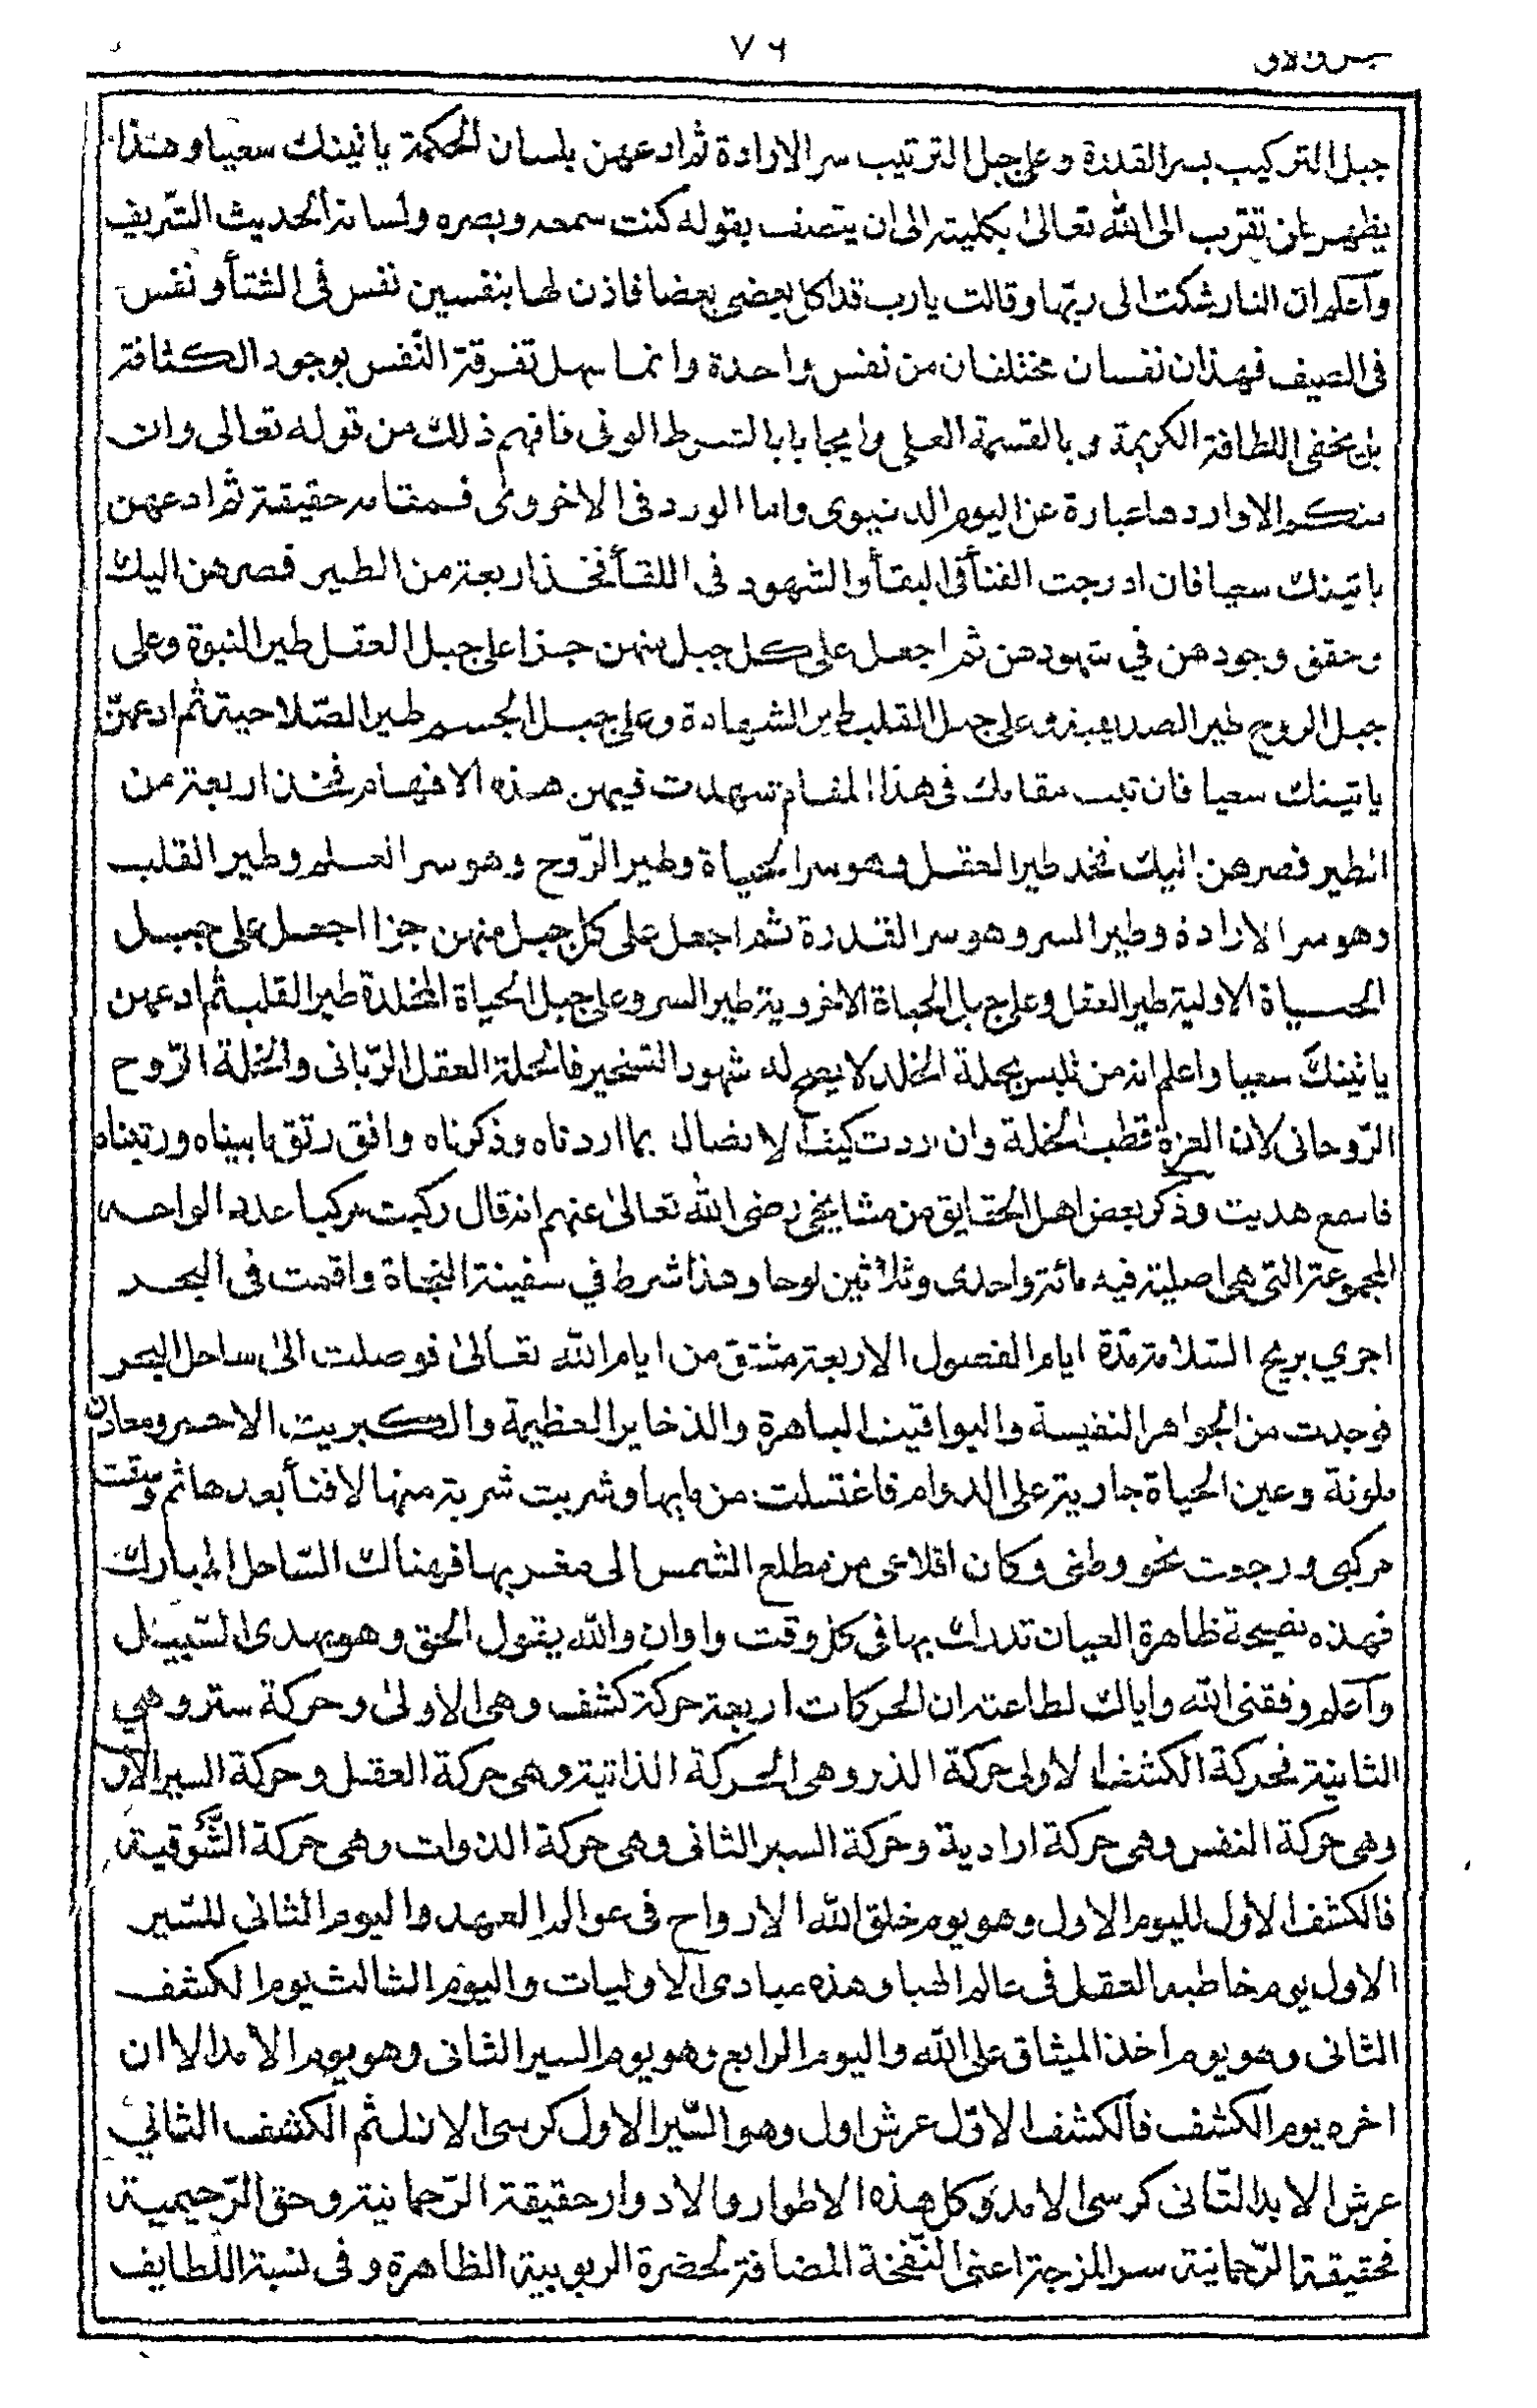 ٧٦
جبل التركيب بسر القدرة وعلى جبل الترتيب سر الارادة ثم ادعهن بلسان الحكمة ياتينك سعيا وهذا
يظهر لمن تقرب الى الله تعالى بكليته الى ان يتصف بقوله كنت سمعه وبصره ولسانه الحديث الشريف
وآعلم ان النار شكت الى ربّها وقالت يارب قد اكل بعضى بعضا فاذن لها بنفسين نفس فى الشتأ ونفس
فى الصيف فهذان نفسان مختلفان من نفس واحدة وانما سهل تفرقة النّفس بوجود الكثافة
اللطافة الكريمة وبالقسمة العلى الوفى فافهم ذلك من قوله تعالى وان
منكم الا واردها عبارة عن اليوم الدنيوى واما الورد فى الاخروى فمقامه حقيقة ثم ادعهن
ياتينك سعيا فان ادرجت الفنأ فى البقأ والشهود فى اللقأ فخذ اربعة من الطير فصرهن اليك
وحقق وجودهن في شهودهن ثم اجعل على كل جبل منهن جزا على جبل العقل طير النبوة وعلى
جبل الروح طير الصديقية وعلى جبل القلب طير الشهادة وعلى جبل الجسم طير الصّلاحية ثم ادعهنّ
ياتينك سعيا فان مقامك فى هذا المقام شهدت فيهن هذه الافهام فخذ اربعة من
الطير فصرهن اليك فخذ طير العقل وهو سر الحياة وطير الرّوح وهو سر العلم وطير القلب
وهو سر الارادة وطير السر وهو سر القدرة ثم اجعل على كل جبل منهن جزا اجعل على جبل
الحياة الاولية طير العقل وعلى جبل الحياة الاخروية طير السر وعلى جبل الحياة المخلدة طير القلب ثم ادعهن
ياتينك سعيا واعلم انه من تلبس بحلة الخلد لا يصح له شهود التسخير فالحلة العقل الرّبانى والخلة الرّوح
الرّوحانى لان العزة قطب الخلة وان اردت كيف الاتصال بما اردناه وذكرناه وافق رتق ما بيناه ورتبناه
فاسمع هديت وذكر بعض اهل الحقايق من مشايخى رضى الله تعالى عنهم انه قال ركبت مركبا عدد الواحه
المجموعة التى هى اصلية فيه مائة واحدى وثلاثين لوحا وهذا شرط في سفينة النجاة واقمت فى البحر
اجري بريح السّلامة مدّة ايام الفصول الاربعة مشتق من ايام الله تعالى فوصلت الى ساحل البحر
فوجدت من الجواهر النفيسة واليواقيت الباهرة والذخاير العظيمة والكبريت الاحمر ومعادن
ملونة وعين الحياة جارية على الدوام فاغتسلت من مايها وشربت شربة منها لا فنأ بعدها ثم وسقت
مركبى ورجعت نحو وطنى وكان اقلاعى من مطلع الشمس الى مغربها فهنالك السّاحل المبارك
فهذه نصيحة ظاهرة العيان تدرك بها فى كل وقت واوان والله يقول الحق وهو يهدى السّبيل
وآعلم وفقنى الله واياك لطاعته ان الحركات اربعة حركة كشف وهى الاولى وحركة ستر وهي
الثانية فحركة الكشف الاولى حركة الذر وهى الحركة الذاتية وهى حركة العقل وحركة السير الاول
وهى حركة النفس وهى حركة ارادية وحركة السير الثانى وهى حركة الذوات وهى حركة الشّوقية
فالكشف الاول لليوم الاول وهو يوم خلق الله الارواح فى عوالم العهد واليوم الثانى للسّير
الاول يوم خاطب العقل فى عالم الهبا وهذه مبادى الاوليات واليوم الثالث يوم الكشف
الثانى وهو يوم اخذ الميثاق على الله واليوم الرابع وهو يوم السير الثانى وهو يوم الامد الا ان
اخره يوم الكشف فآلكشف الاوّل عرش اول وهو السّير الاول كرسى الازل ثم الكشف الثاني
عرش الابد الثّانى كرسى الامد وكل هذه الاطوار والادوار حقيقة الرّحمانية وحق الرّحيمية
فحقيقة الرّحمانية سر المزجة اعنى النّفخة المضافة لحضرة الربوبية الظاهرة وفى نسبة اللّطايف